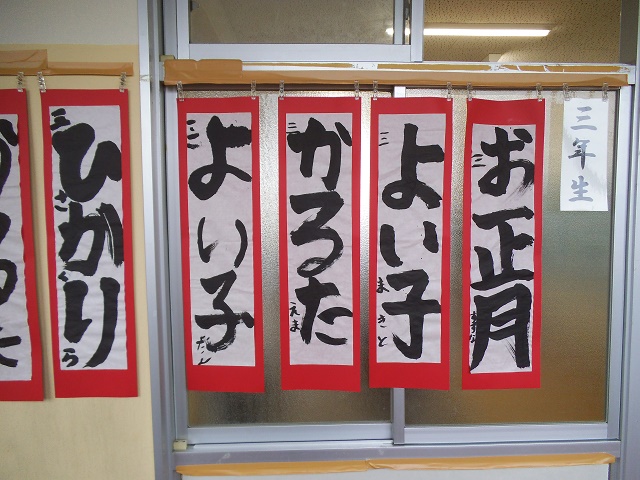 三年生
お正月
三
よい子
三
まさと
かるた
三
えま
よい子
三
ひかり
三
さくら